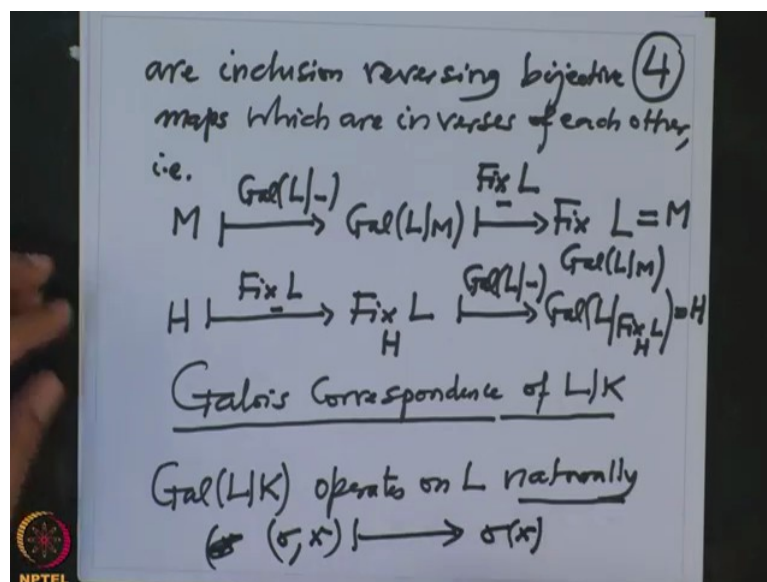 are inclusion reversing bijective ④
maps which are inverses of each other,
i.e.
M ⟼ Gal(L|-) Gal(L|M) ⟼ Fix_- L Fix_{Gal(L|M)} L = M
H ⟼ Fix_- L Fix_H L ⟼ Gal(L|-) Gal(L|Fix_H L) = H
Galois Correspondence of L|K
Gal(L|K) operates on L naturally
(σ, x) ⟼ σ(x)
NPTEL